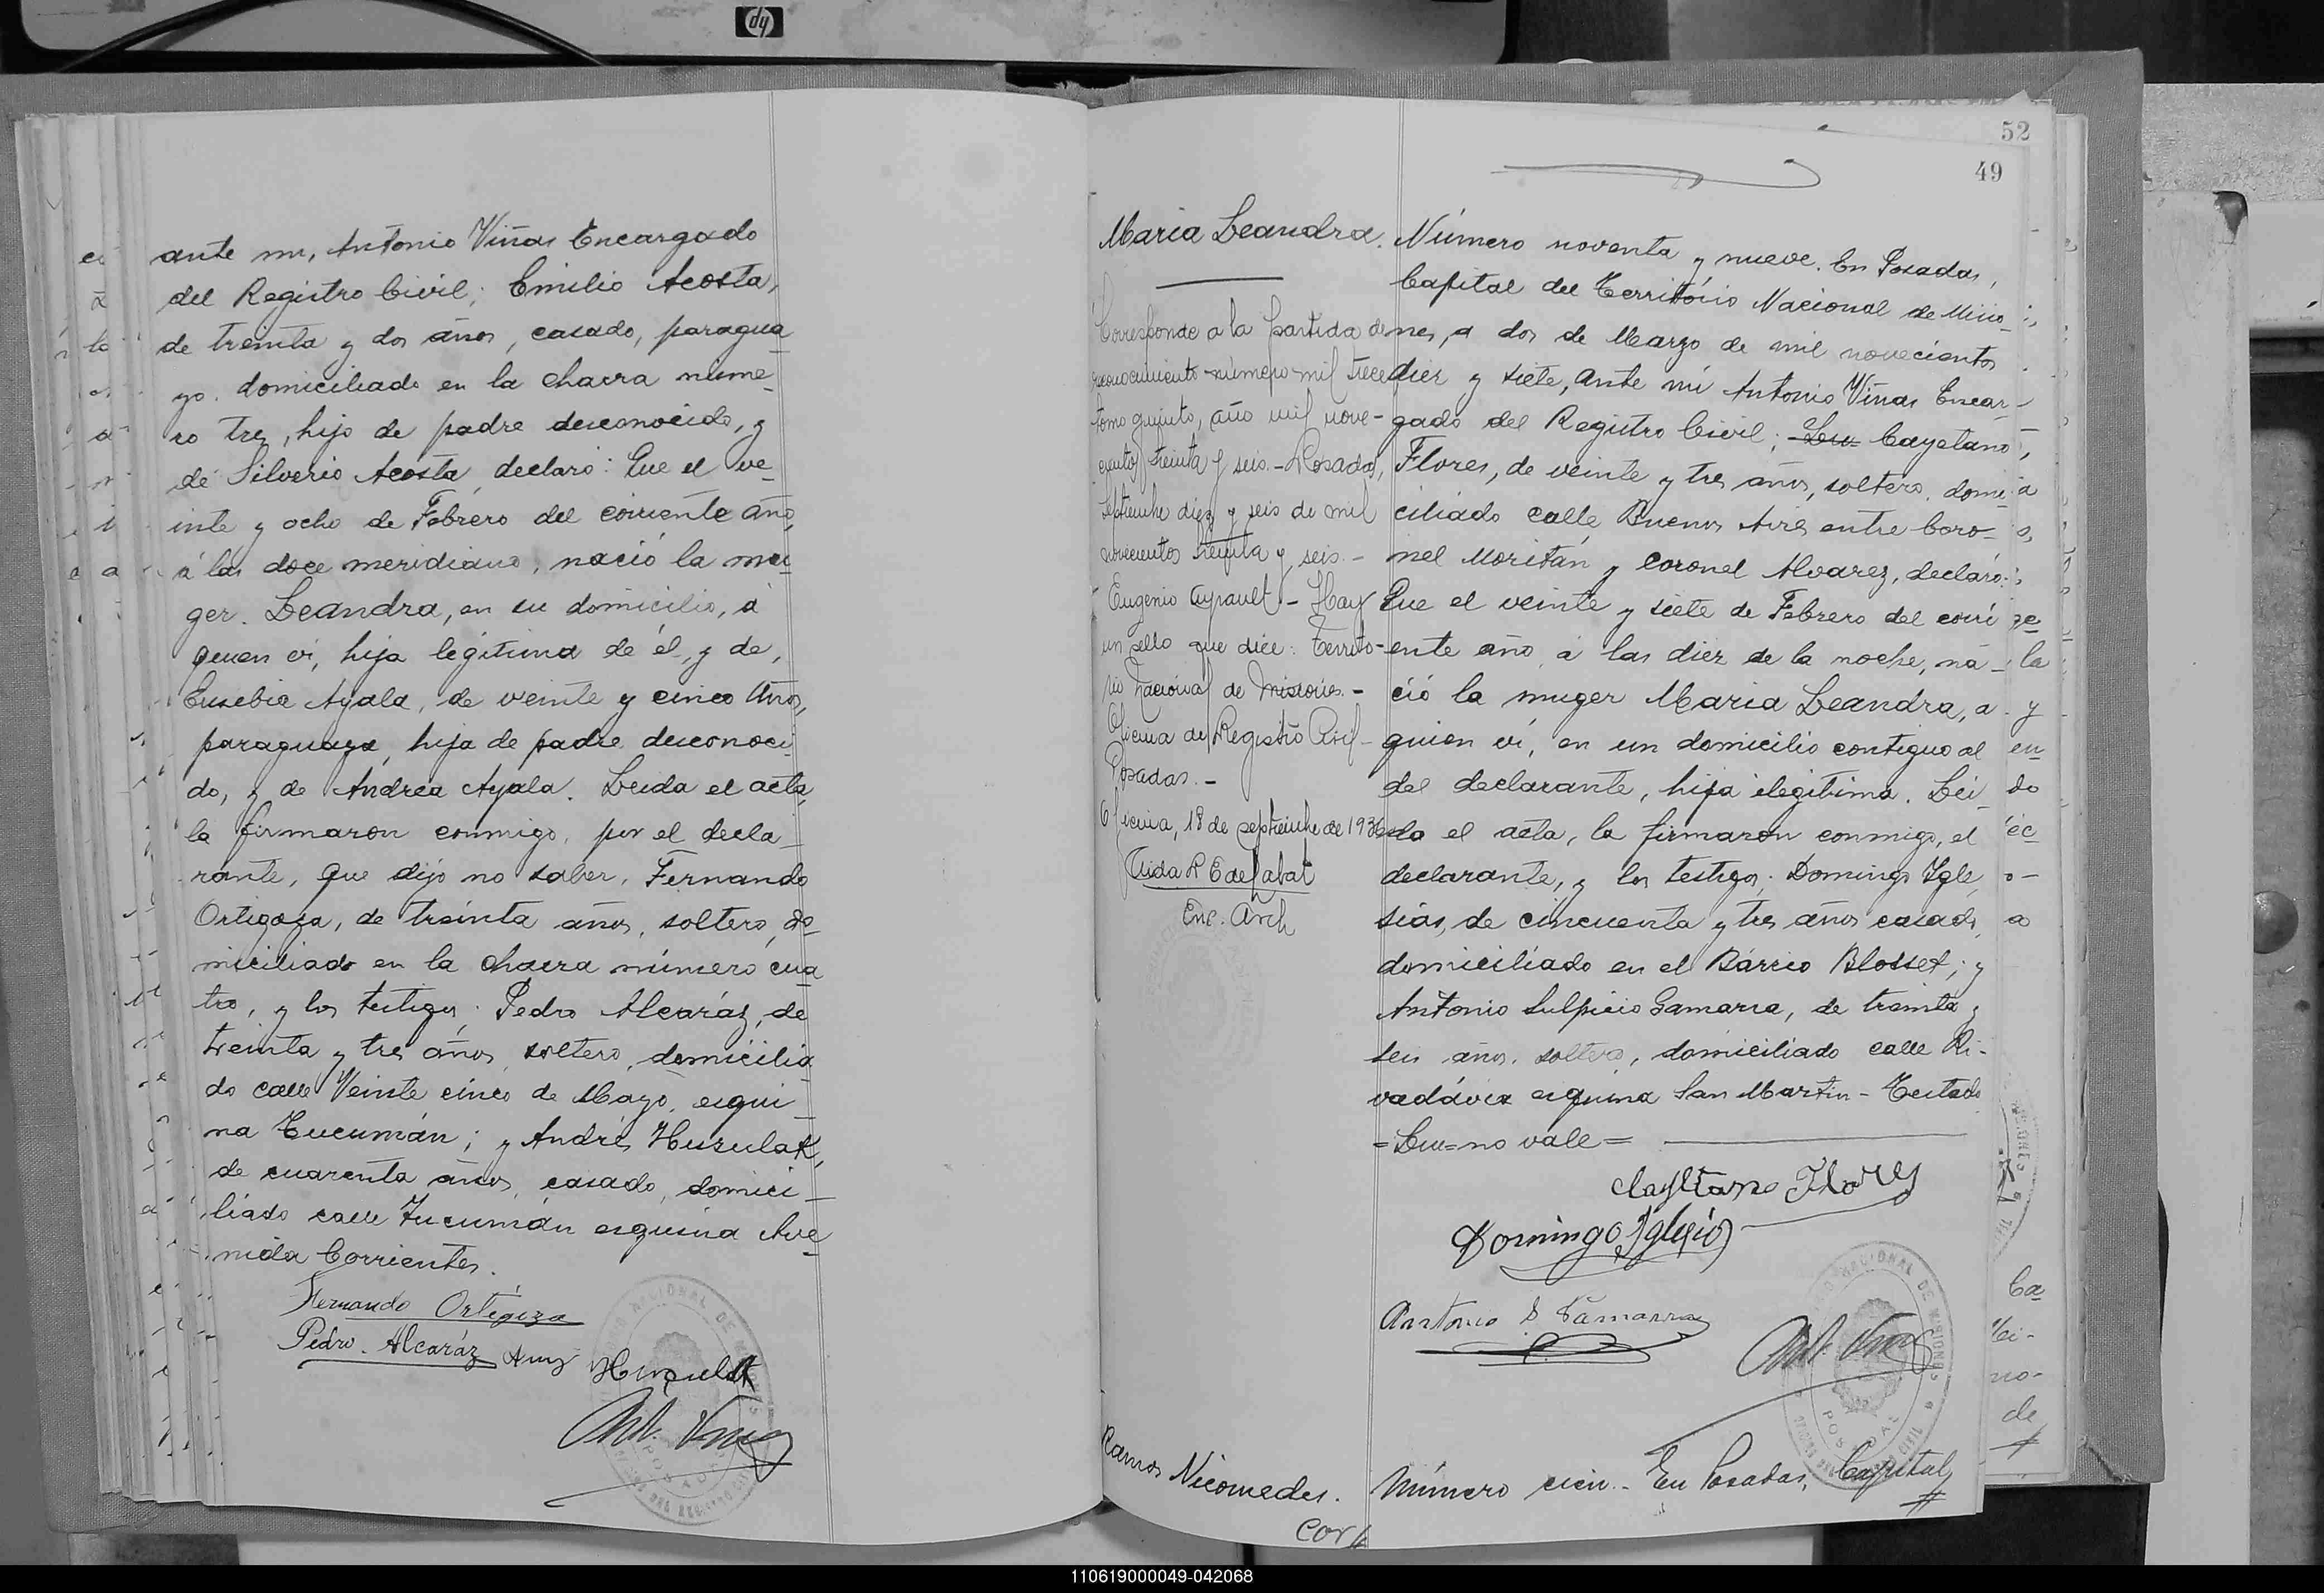 hp
ante mi, Antonio Viñas Encargado
del Registro Civil; Emilio Acosta,
de treinta y dos años, casado, paragua_
yo. domiciliado en la chacra núme_
ro tres, hijo de padre desconocido, y
de Silveria Acosta, declaró: Que el ve_
inte y ocho de Febrero del corriente año,
á las doce meridiano, nació la mu_
ger. Leandra, en su domicilio, á
quien ví, hija legítima de él, y de,
Eusebia Ayala, de veinte y cinco años,
paraguaya, hija de padre desconoci_
do, y de Andrea Ayala. Leida el acta,
la firmaron conmigo, por el decla_
rante, que dijo no saber, Fernando
Ortigoza, de treinta años, soltero, do_
miciliado en la chacra número cua_
tro, y los testigos; Pedro Alcaráz, de
treinta y tres años, soltero, domicilia_
do calle Veinte cinco de Mayo, esqui_
na Tucumán; y Andrés Huzulak,
de cuarenta años, casado, domici_
liado calle Tucumán esquina Ave_
nida Corrientes.
Fernando Ortigoza
Pedro Alcaráz
Huzulak
Ant. Viñas
52
49
Maria Leandra.
Corresponde a la partida de
reconocimiento número mil trece
tomo quinto, año mil nove-
cientos treinta y seis.- Posadas,
septiembre diez y seis de mil
novecientos treinta y seis.-
Eugenio Ayrault - Hay
un sello que dice: Territo-
rio Nacional de Misiones.-
Oficina de Registro Civil-
Posadas.-
Oficina, 18 de septiembre de 1936
Enc. Arch
Número noventa y nueve. En Posadas,
Capital del Território Nacional de Misio_
nes, a dos de Marzo de mil novecientos
diez y siete, ante mí Antonio Viñas Encar_
gado del Registro Civil; Leu Cayetano
Flores, de veinte y tres años, soltero, domi_
ciliado calle Buenos Aires entre Coro_
nel Moritán y Coronel Alvarez, declaró:
Que el veinte y siete de Febrero del corri_
ente año, á las diez de la noche, na_
ció la muger Maria Leandra, a
quien ví, en un domicilio contiguo al
del declarante, hija ilegítima. Lei_
da el acta, la firmaron conmigo, el
declarante, y los testigos; Domingo Igle_
sias, de cincuenta y tres años casado,
domiciliado en el Bárrio Blosset; y
Antonio Sulpicio Gamarra, de treinta y
seis años, soltero, domiciliado calle Ri-
vadávia esquina San Martin - Testado
=Leu= no vale=
Cayetano Flores
Domingo Iglesias
Antonio S Gamarra
Ant. Viñas
Ramos Nicomedes.
Número cien.- En Posadas, Capital
110619000049-042068